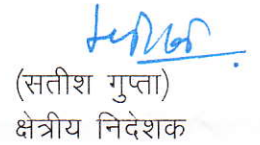 (सतीश गुप्ता)
क्षेत्रीय निदेशक